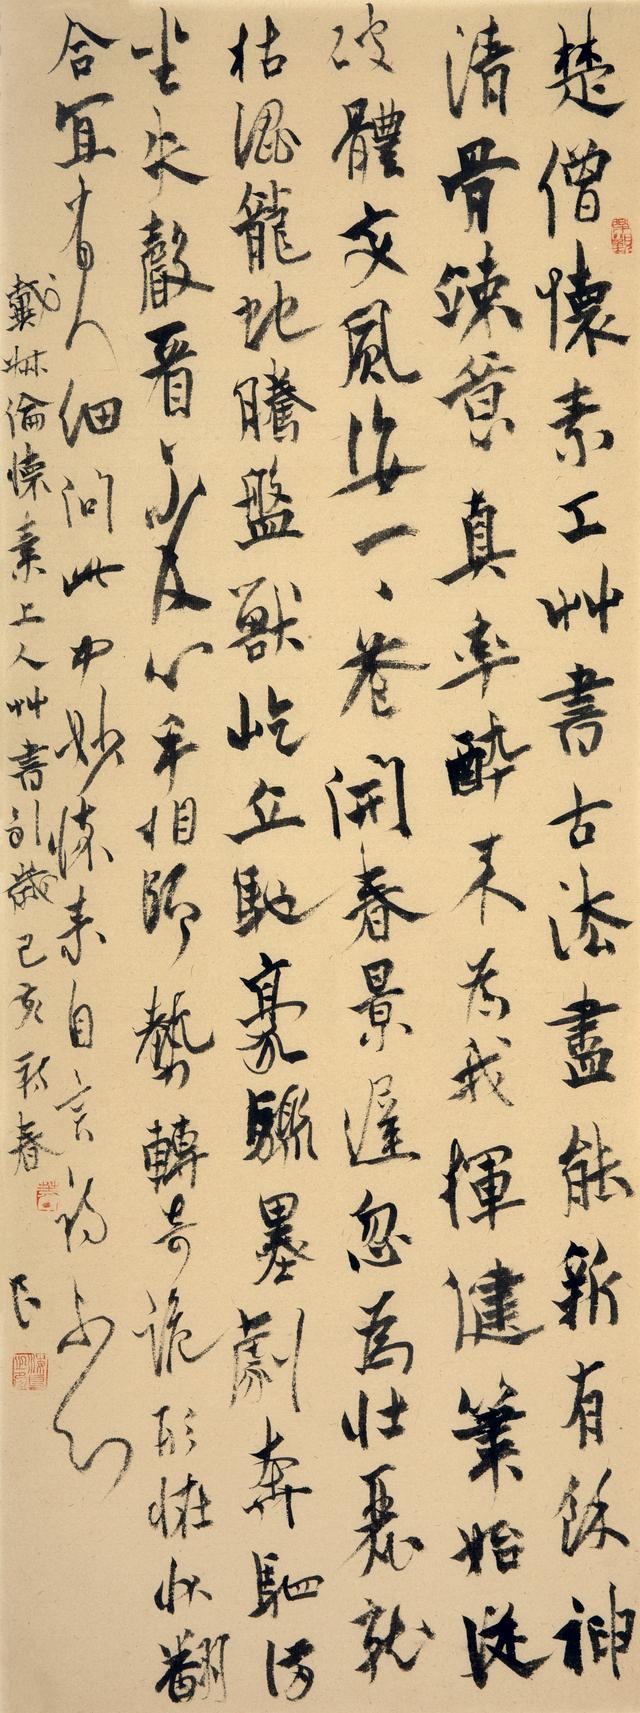 楚僧懷素工艸書古法盡能新有餘神
清骨竦意真率醉來為我揮健筆始從
破體變風姿一、花開春景遲忽為壯麗就
枯澀龍蛇騰盤獸屹立馳豪驟墨劇奔駟滿
坐失聲看不及心手相師勢轉奇詭形怪狀翻
合宜有人細問此中妙懷素自言初不知
戴叔倫懷素上人艸書引歲己亥新春